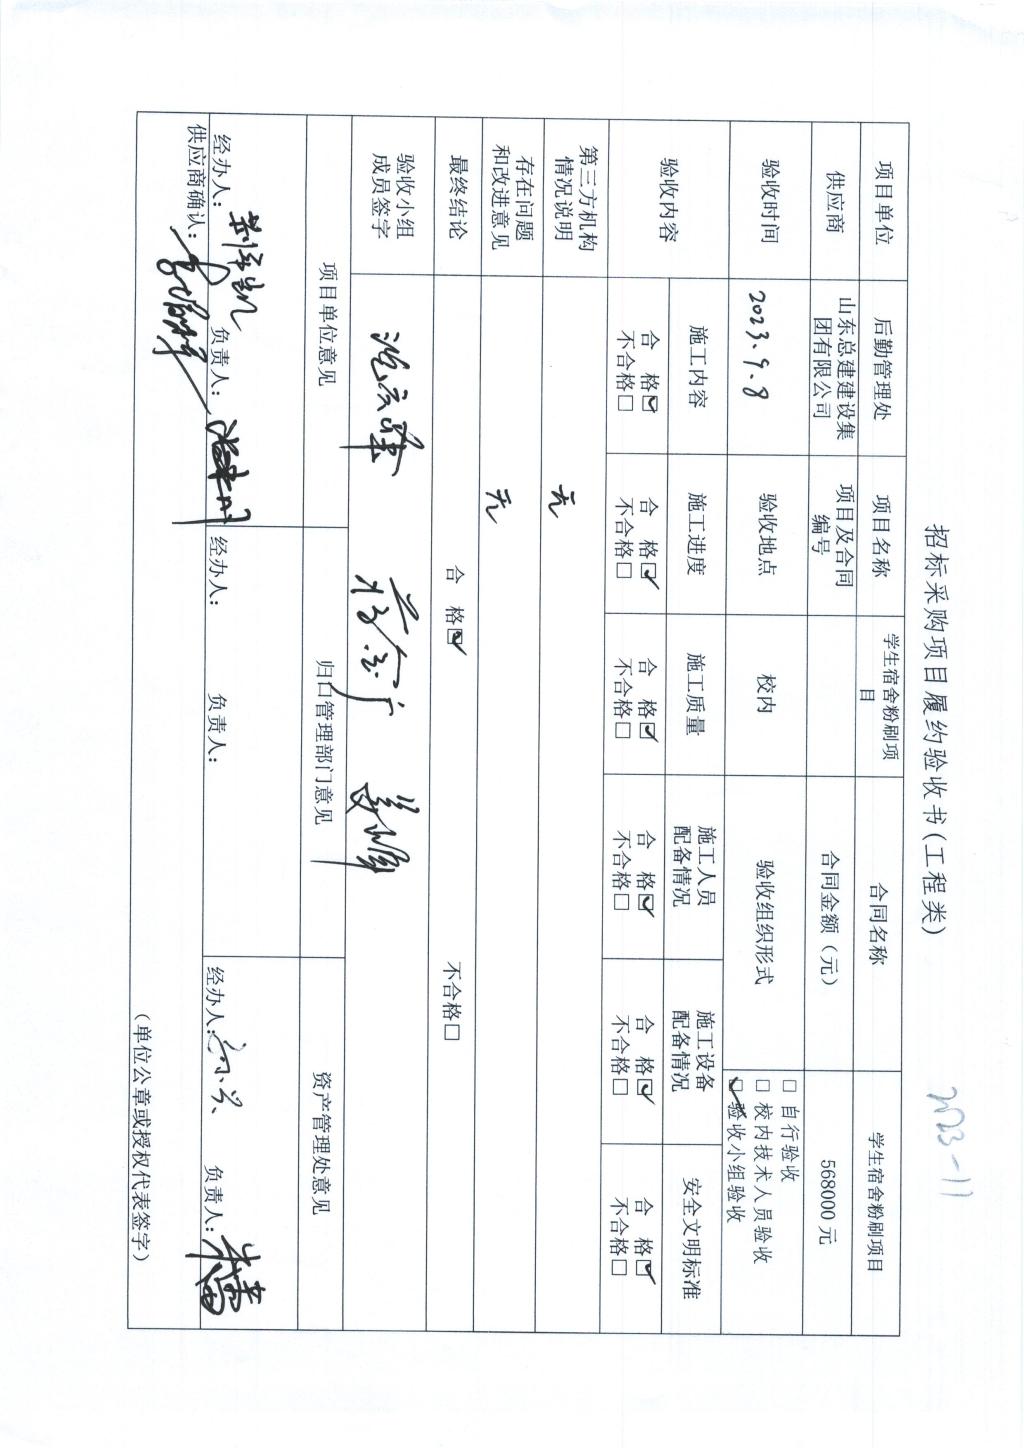 招标采购项目履约验收书(工程类)
2023-11
项目单位 后勤管理处 项目名称 学生宿舍粉刷项目 合同名称 学生宿舍粉刷项目
供应商 山东总建建设集团有限公司 项目及合同编号 合同金额(元) 568000元
验收时间 2023.9.8 验收地点 校内 验收组织形式
□ 自行验收
□ 校内技术人员验收
☑ 验收小组验收
验收内容 施工内容 施工进度 施工质量 施工人员配备情况 施工设备配备情况 安全文明标准
合 格☑ 合 格☑ 合 格☑ 合 格☑ 合 格☑ 合 格☑
不合格□ 不合格□ 不合格□ 不合格□ 不合格□ 不合格□
第三方机构
情况说明
无
存在问题
和改进意见
无
最终结论 合 格☑ 不合格□
验收小组
成员签字
项目单位意见 归口管理部门意见 资产管理处意见
经办人: 负责人: 经办人: 负责人: 经办人: 负责人:
供应商确认:
(单位公章或授权代表签字)